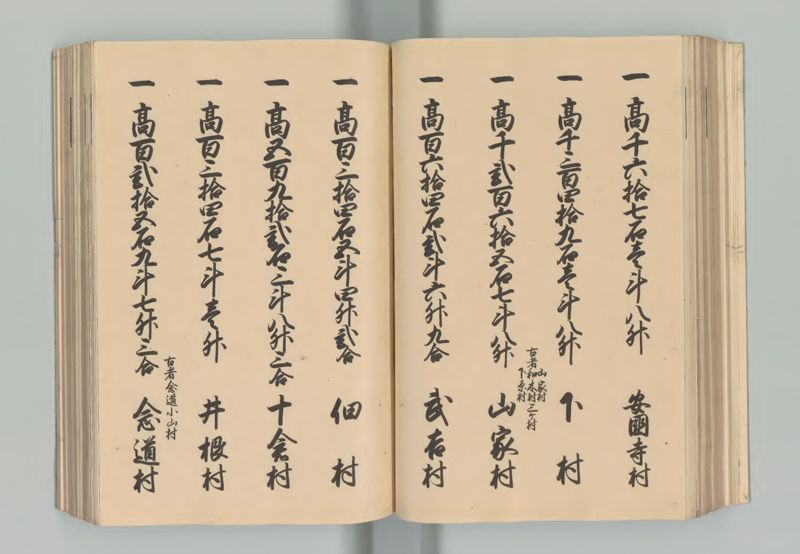 一 高千六拾七石壱斗八升 安国寺村
一 高千三百四拾九石壱斗八升 下村
一 高千弐百六拾五石七斗八升 山家村
古者 山家村 和木村 下原村 三ヶ村
一 高百六拾四石弐斗六升九合 武吉村
一 高百三拾四石五斗四升弐合 佃村
一 高五百九拾弐石三斗八升三合 十倉村
一 高百三拾四石七斗壱升 井根村
一 高百弐拾五石九斗七升三合 念道村
古者念道小山村